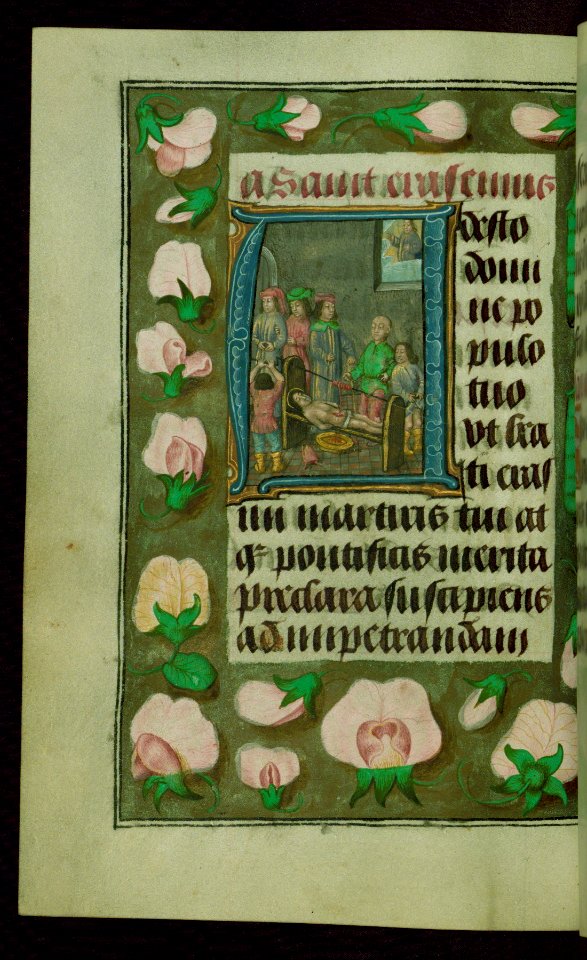 a Saint erasemus
desto
domi
ne po
pulo
tuo
vt bea
ti eras
mi martiris tui at
qȝ pontificis merita
preclara suscipiens
ad impetrandam